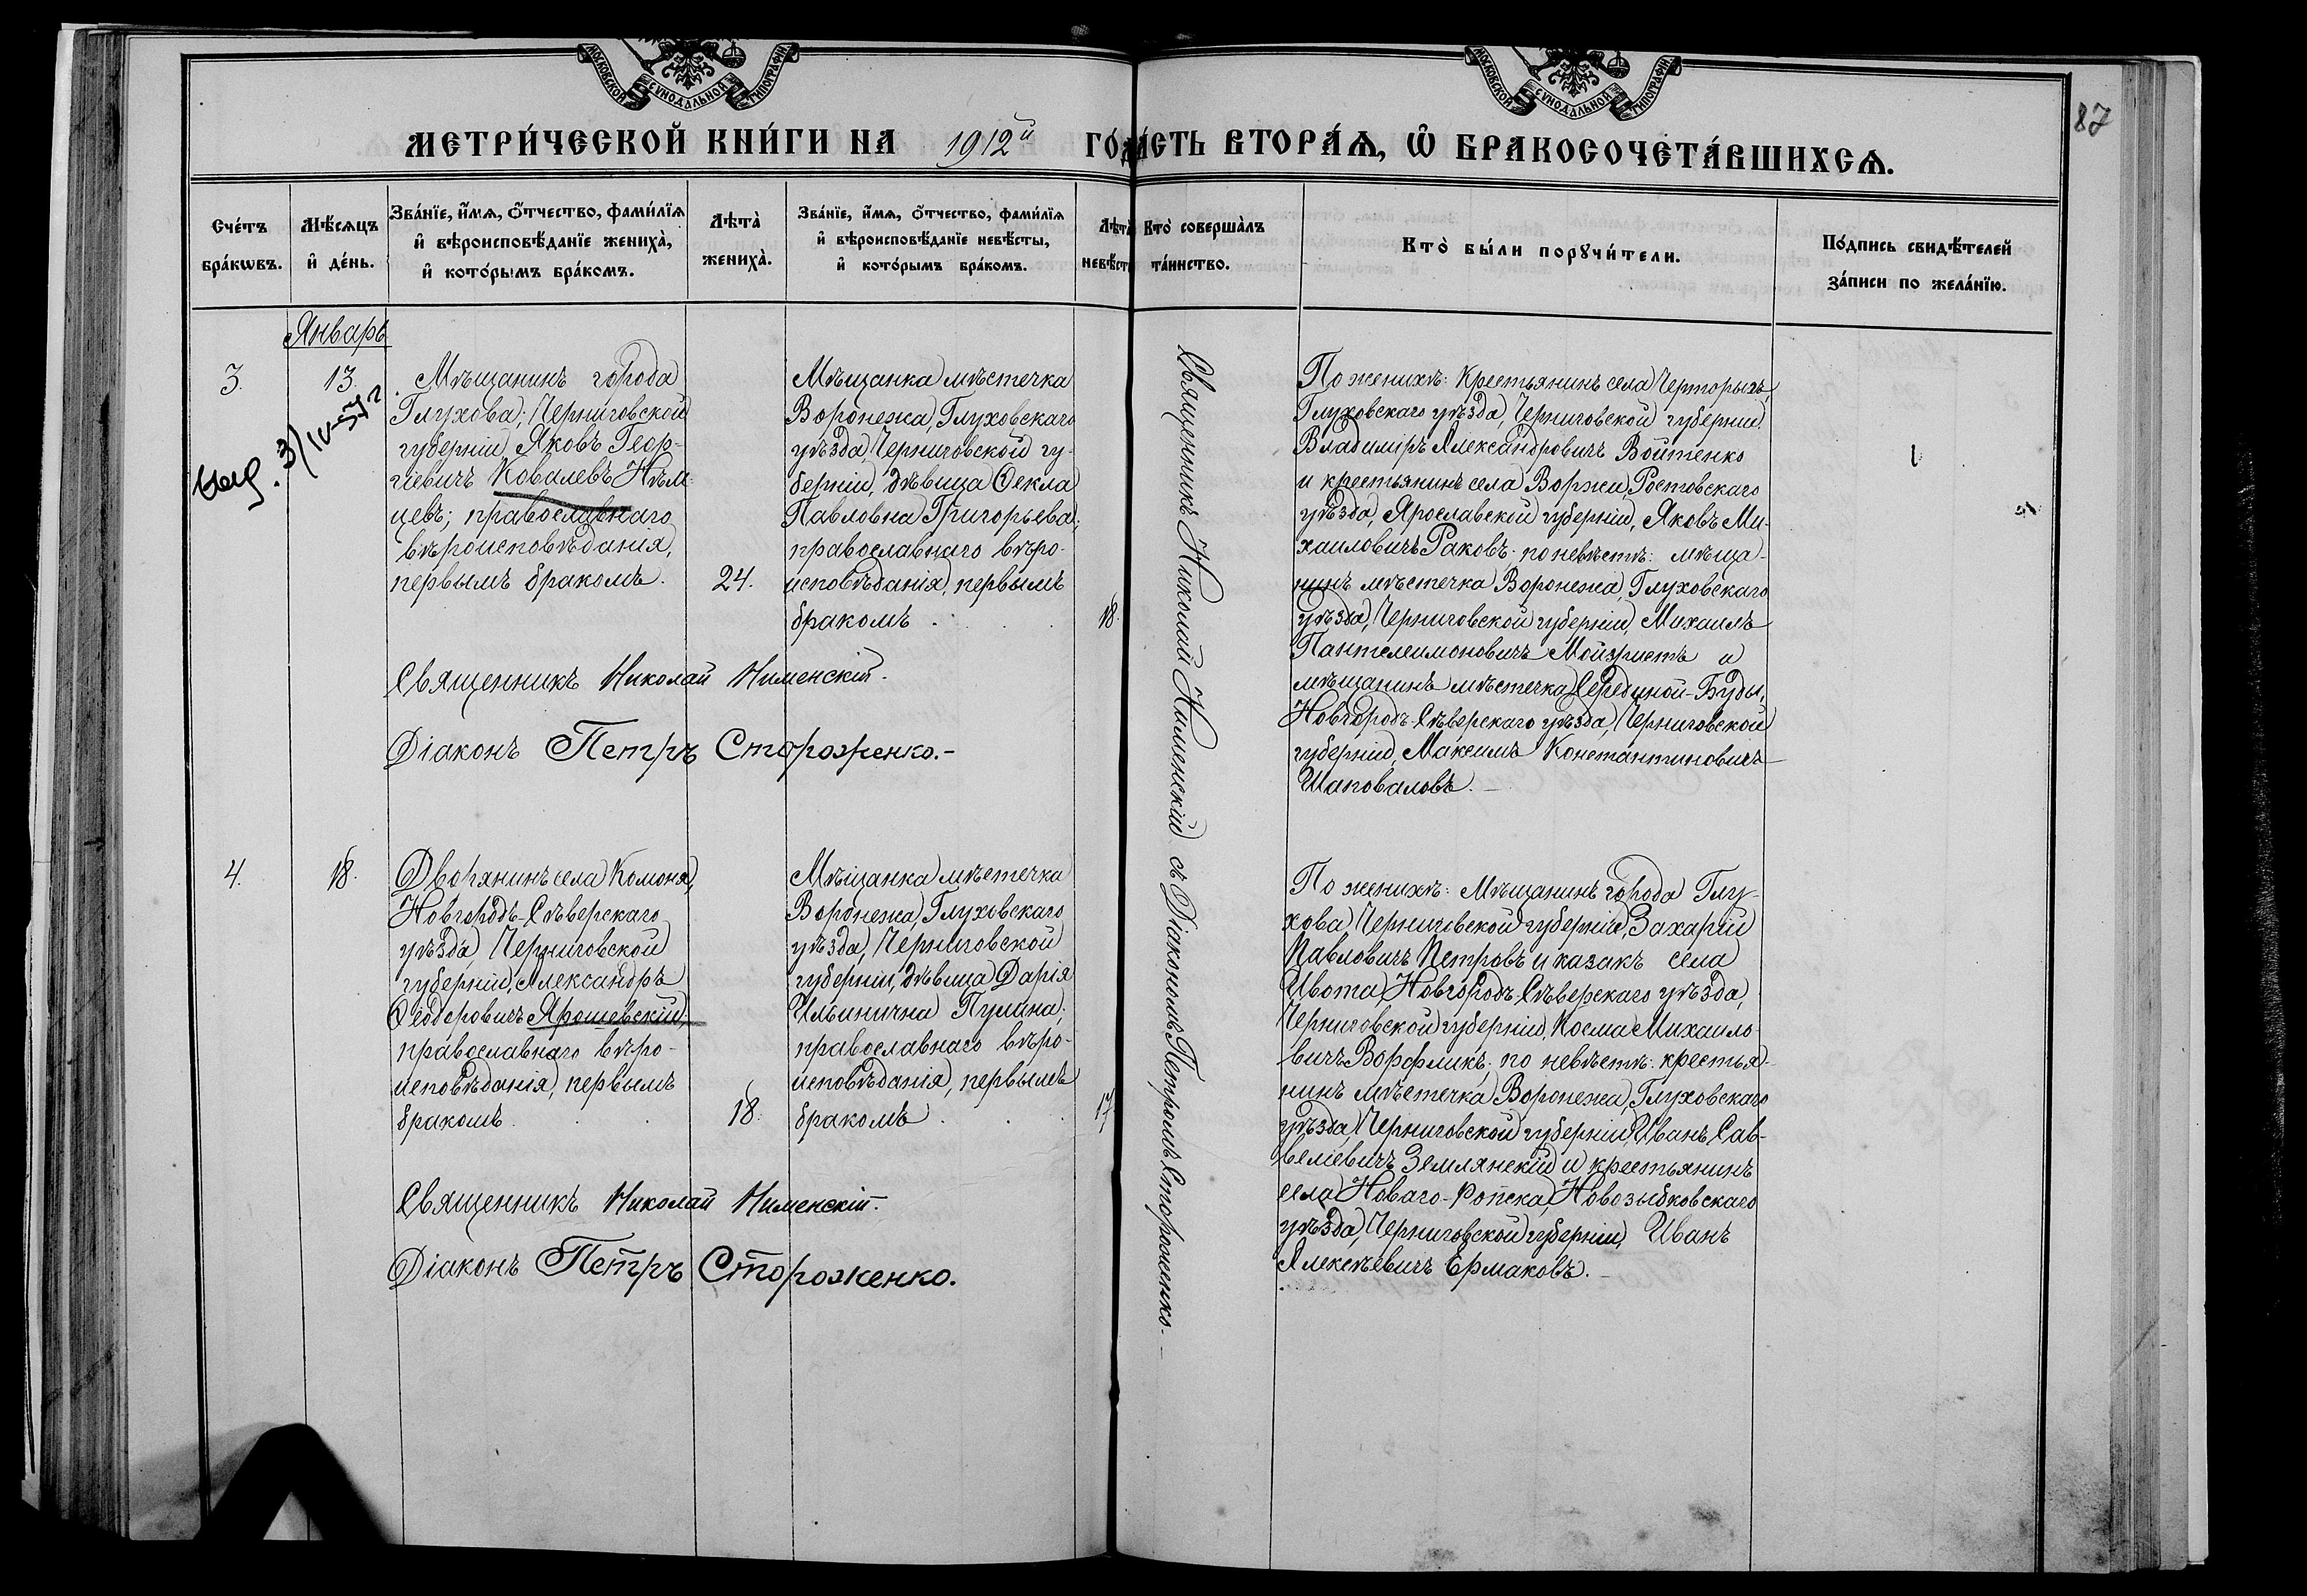 МОСКОВСКОЙ СѴНОДАЛЬНОЙ ТИПОГРАФІИ
МОСКОВСКОЙ СѴНОДАЛЬНОЙ ТИПОГРАФІИ
87
МЕТРИ́ЧЕСКОЙ КНИ́ГИ НА 1912й ГО́ДА
ЧА́СТЬ ВТОРА́Ѧ, Ѡ҆ БРАКОСОЧЕТА́ВШИХСѦ.
Сче́тъ
бра́кѡвъ.
Мѣ́сѧцъ
и҆ де́нь.
Зва́нїе, и҆́мѧ, ѻ҆́тчество, фами́лїѧ
и҆ вѣроисповѣ́данїе жениха̀,
и҆ кото́рымъ бра́комъ.
Лѣта̀
жениха̀.
Зва́нїе, и҆́мѧ, ѻ҆́тчество, фами́лїѧ
и҆ вѣроисповѣ́данїе невѣ́сты,
и҆ кото́рымъ бра́комъ.
Лѣта̀
невѣ́сты
Кто̀ соверша̀лъ
та́инство.
Кто̀ бы́ли порꙋчи́тели.
По́дпись свидѣ́телей
за́писи по жела́нїю.
Январь
3.
13.
Выд. 3/IV-57г
Мѣщанинъ города
Глухова, Черниговской
губерніи, Яковъ Геор-
гіевичъ Ковалевъ-Нѣм-
цевъ; православнаго
вѣроисповѣданія,
первымъ бракомъ.
24.
Мѣщанка мѣстечка
Воронежа, Глуховскаго
уѣзда, Черниговской гу-
берніи, дѣвица Ѳекла
Павловна Григорьева;
православнаго вѣро-
исповѣданія, первымъ
бракомъ.
18.
Священникъ Николай Нименскій.
Діаконъ Петръ Стороженко.-
Священникъ Николай Нименскій съ Діакономъ Петромъ Стороженко.-
По женихѣ: крестьянинъ села Черторыгъ,
Глуховскаго уѣзда, Черниговской губерніи,
Владимиръ Александровичъ Войтенко
и крестьянинъ села Воржи, Ростовскаго
уѣзда, Ярославской губерніи, Яковъ Ми-
хаиловичъ Раковъ; по невѣстѣ: мѣща-
нинъ мѣстечка Воронежа, Глуховскаго
уѣзда, Черниговской губерніи, Михаилъ
Пантелеимоновичъ и
мѣщанинъ мѣстечка Середной-Буды,
Новгородъ-Сѣверскаго уѣзда, Черниговской
губерніи, Максимъ Константиновичъ
Шаповаловъ.-
4.
18.
Дворянинъ села Комоня,
Новгородъ-Сѣверскаго
уѣзда, Черниговской
губерніи, Александръ
Ѳеодоровичъ Ярошевскій,
православнаго вѣро-
исповѣданія, первымъ
бракомъ.
18.
Мѣщанка мѣстечка
Воронежа, Глуховскаго
уѣзда, Черниговской
губерніи, дѣвица Дарія
Ильинична Пулина;
православнаго вѣро-
исповѣданія, первымъ
бракомъ.
17
Священникъ Николай Нименскій.
Діаконъ Петръ Стороженко.
По женихѣ: Мѣщанинъ города Глу-
хова, Черниговской губерніи, Захарій
Павловичъ Петровъ и казакъ села
Ивота, Новгородъ-Сѣверскаго уѣзда,
Черниговской губерніи, Косма Михаило-
вичъ; по невѣстѣ: крестья-
нинъ мѣстечка Воронежа, Глуховскаго
уѣзда, Черниговской губерніи, Иванъ Сав-
веліевичъ Землянскій и крестьянинъ
села Новаго-Ропска, Новозыбковскаго
уѣзда, Черниговской губерніи, Иванъ
Алексѣевичъ Ермаковъ.-